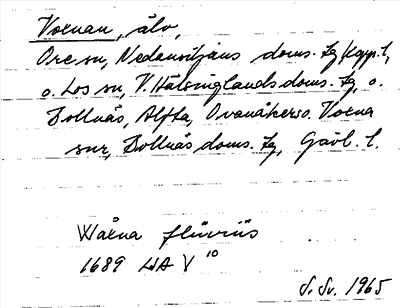 Voxnan, älv,
Ore sn, Nedansiljans doms. tg Kopp. l,
o. Los sn, V. Hälsinglands doms. tg, o.
Bollnäs, Alfta, Ovanåkers o. Voxna
snr, Bollnäs doms. tg, Gävl. l.
Wåxna flüviüs
1689 LSA V 10
S. Sv. 1965